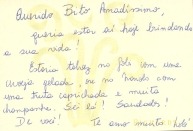 Querido Beto Amadíssimo,
queria estar aí hoje brindando
a sua vida!
Estaria talvez no Pólo com uma
cerveja gelada, ou no Nando com
uma fruta caprichada e muita
champanhe. Sei lá! Saudades!
De você! Te amo muito!